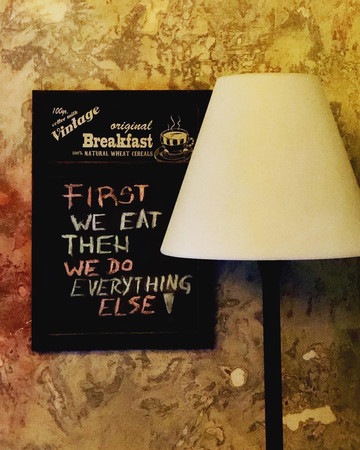 100gr.
coffee with
Vintage
original
Breakfast
100% NATURAL WHEAT CEREALS
FIRST
WE EAT
THEN
WE DO
EVERYTHING
ELSE!